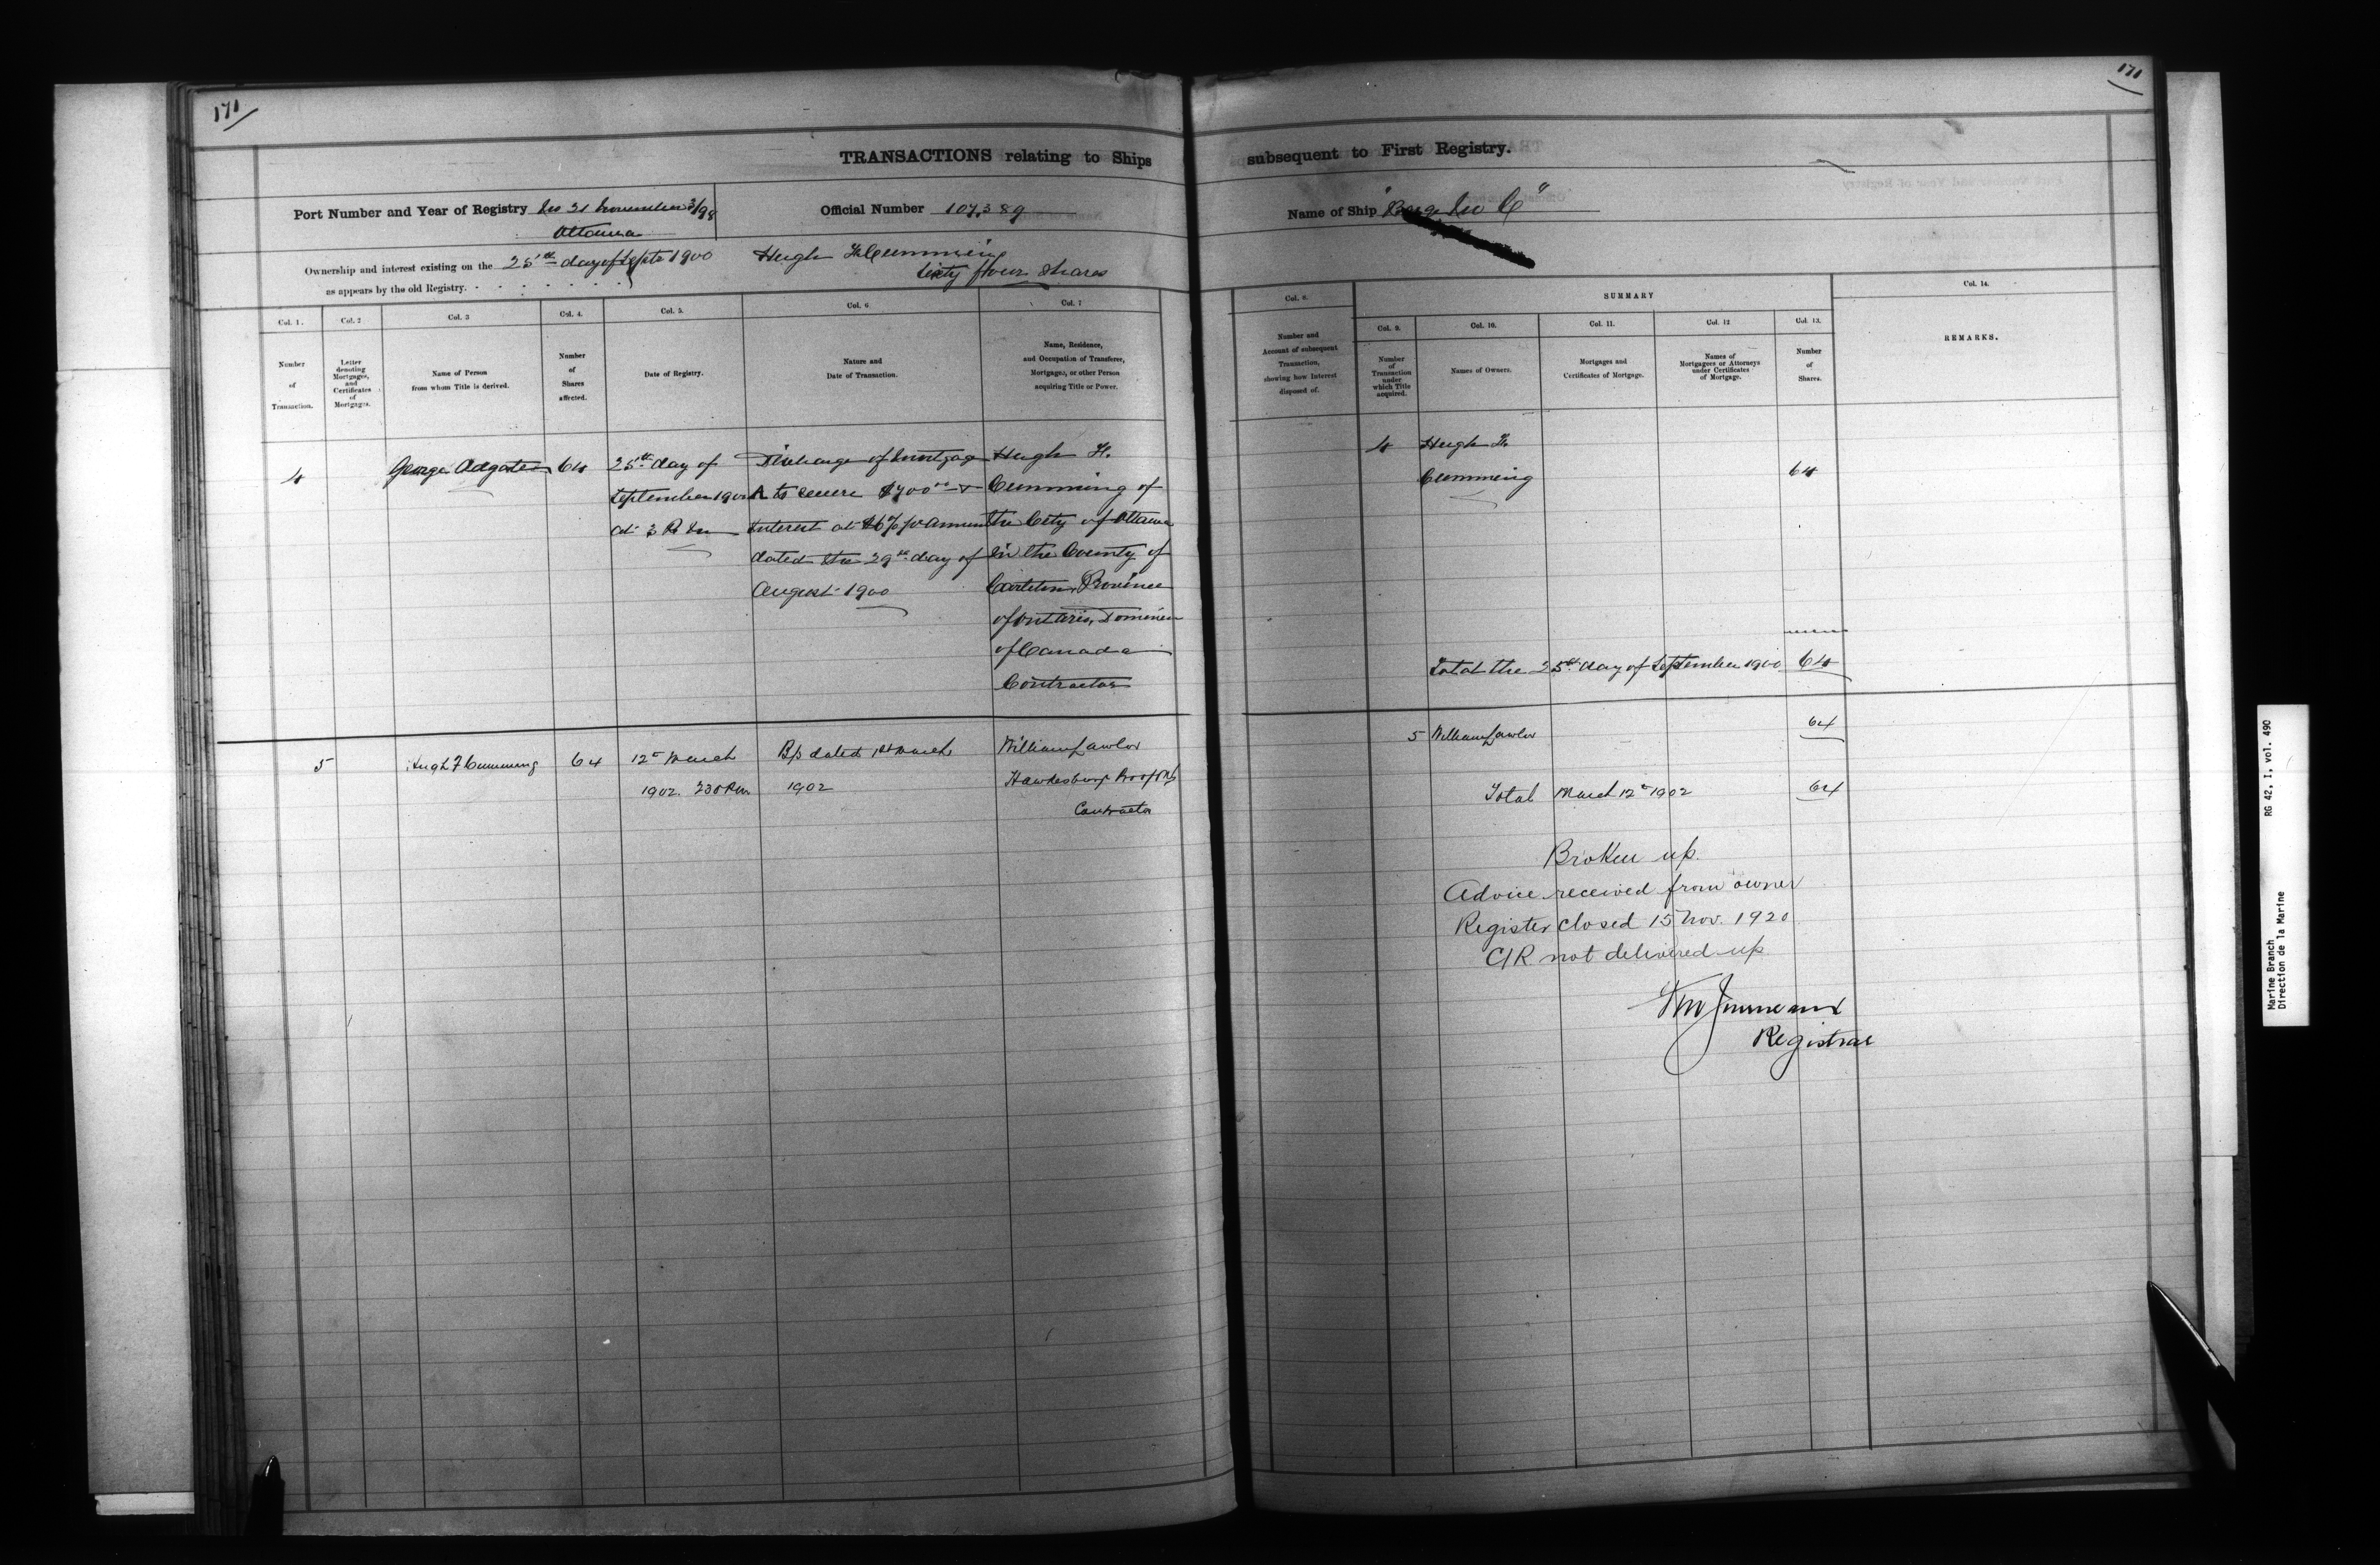 171
171
TRANSACTIONS relating to Ships subsequent to First Registry.
Port Number and Year of Registry No 21 November 3/98
Ottawa
Official Number 107,389
Name of Ship "Barge No
Ownership and interest existing on the 25th day of Septe 1900
as appears by the old Registry.
Hugh F Cumming
Sixty four Shares
Col. 1.
Number
of
Transaction.
Col. 2
Letter
denoting
Mortgages,
and
Certificates
of
Mortgages.
Col. 3
Name of Person
from whom Title is derived.
Col. 4.
Number
of
Shares
affected.
Col. 5.
Date of Registry.
Col. 6
Nature and
Date of Transaction.
Col. 7
Name, Residence,
and Occupation of Transferee,
Mortgagee, or other Person
acquiring Title or Power.
Col. 8.
Number and
Account of subsequent
Transaction,
shewing how Interest
disposed of.
SUMMARY
Col. 9.
Number
of
Transaction
under
which Title
acquired.
Col. 10.
Names of Owners.
Col. 11.
Mortgages and
Certificates of Mortgage.
Col. 12
Names of
Mortgagees or Attorneys
under Certificates
of Mortgage.
Col. 13.
Number
of
Shares.
Col. 14.
REMARKS.
4
George Adgate
64
25th day of
September 1900
at 3 P. M
Discharge of Mortgage
A to secure $700.00 &
Interest at 6% p annum
dated the 29th day of
August 1900
Hugh F.
Cumming of
the City of Ottawa
in the County of
Carleton, Province
of Ontario, Dominion
of Canada
Contractor
4
Hugh F.
Cumming
64
Total the 25th day of September 1900 64
5
Hugh F Cumming
64
12th March
1902. 230 P.m.
B/s dated 1st March
1902
William Lawlor
Hawkesbury Prov of Ont
Contractor
5 William Lawlor 64
Total March 12th 1902 64
Broken up.
Advice received from owner
Register closed 15 Nov. 1920.
C/R not delivered up
Registrar
Marine Branch RG 42, I, vol. 490
Direction de la Marine